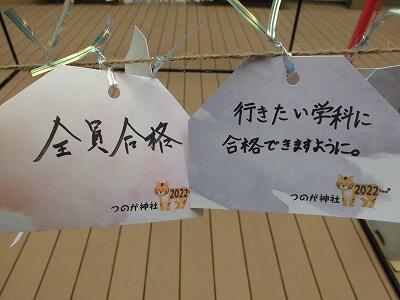 全員合格
つのが神社
2022
行きたい学科に
合格できますように。
つのが神社
2022